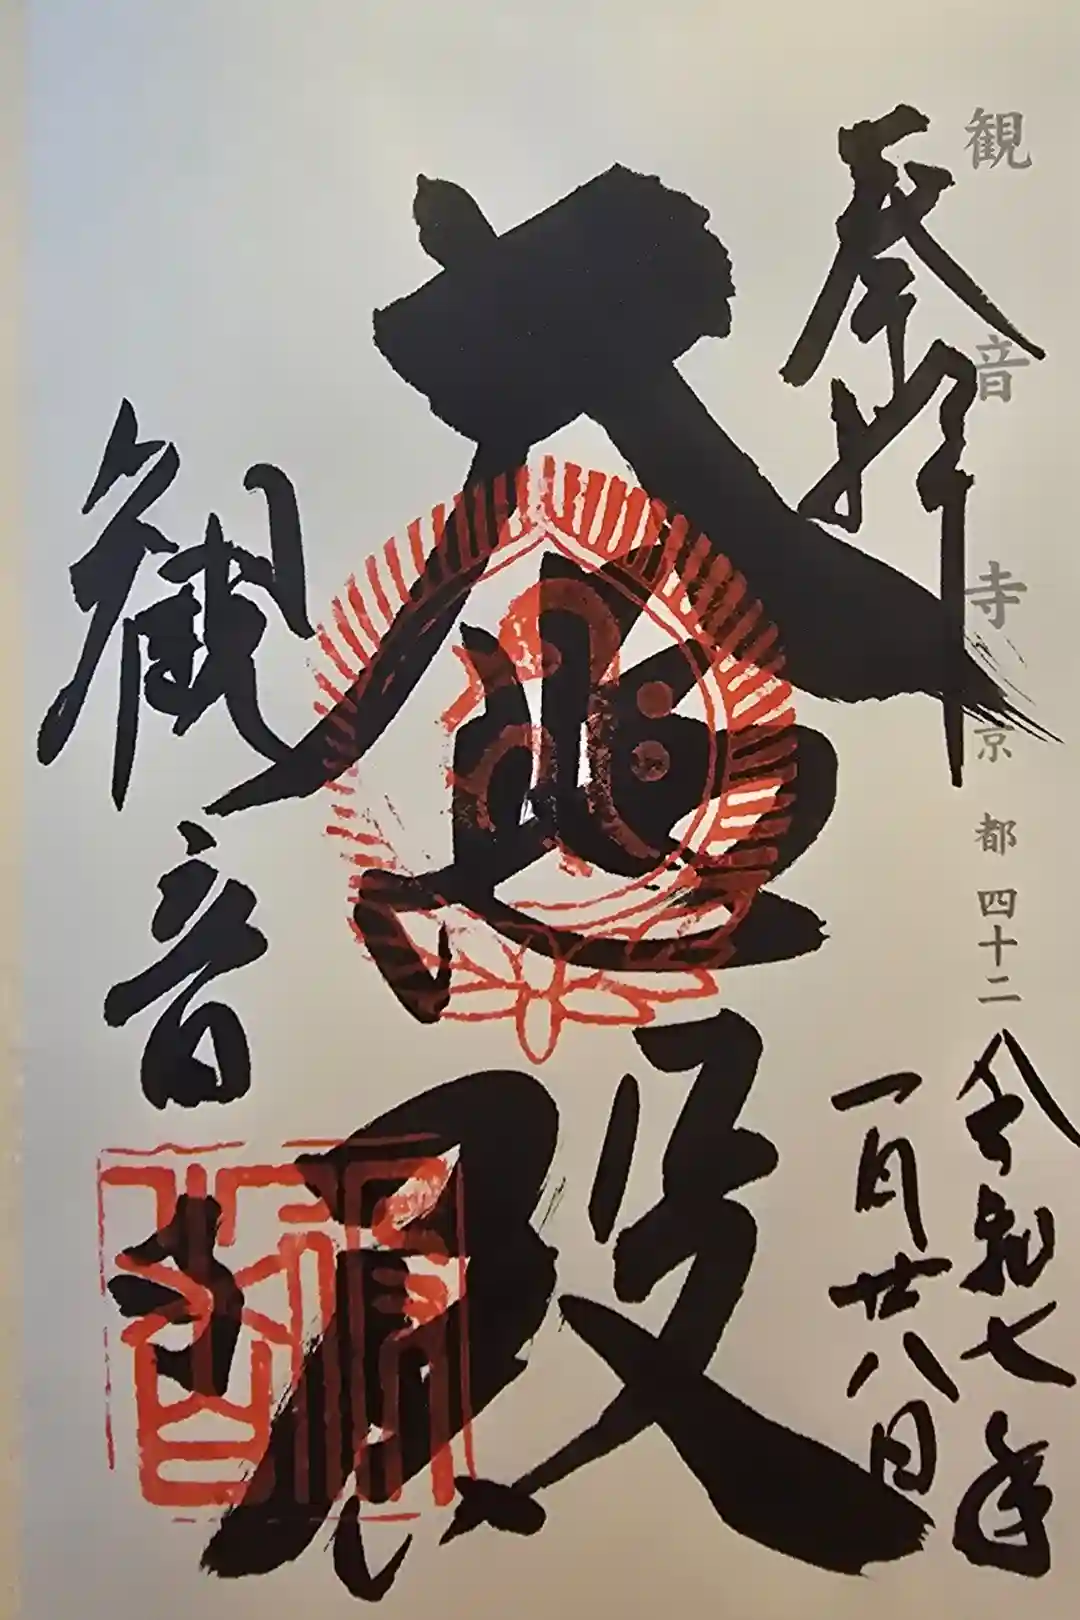 観音寺 京都四十二
奉拝
令和七年
一月廿八日
大悲殿
観音寺